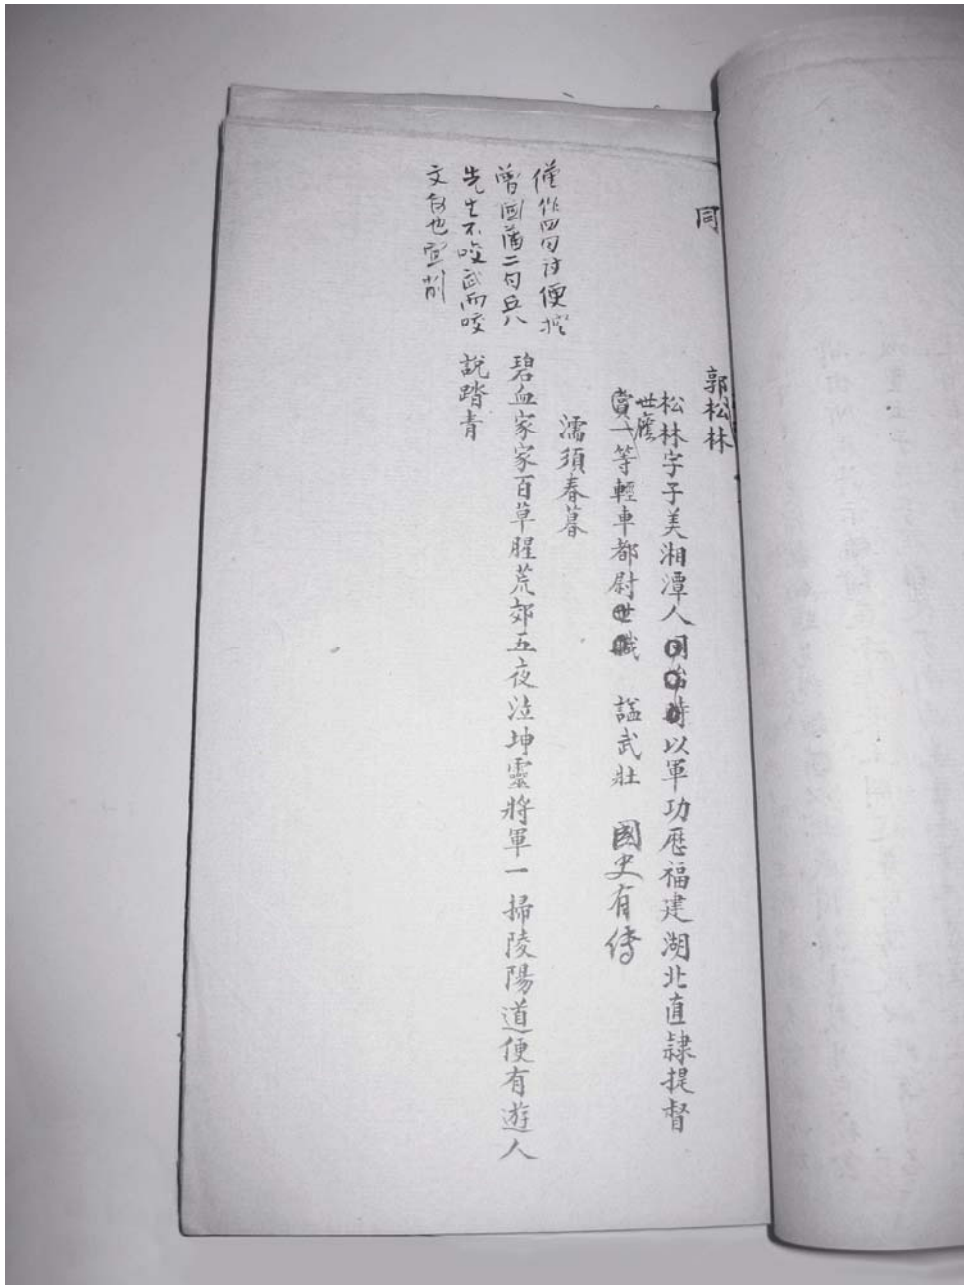 同
郭松林
松林字子美湘潭人同治時以軍功歷福建湖北直隸提督
賞一等輕車都尉世職 諡武壯 國史有傳
世應
濡須春暮
碧血家家百草腥荒郊五夜泣坤靈將軍一掃陵陽道便有遊人
說踏青
僅作四句詩便
曾國藩二句兵
先生不咬武而咬
文者也宜削